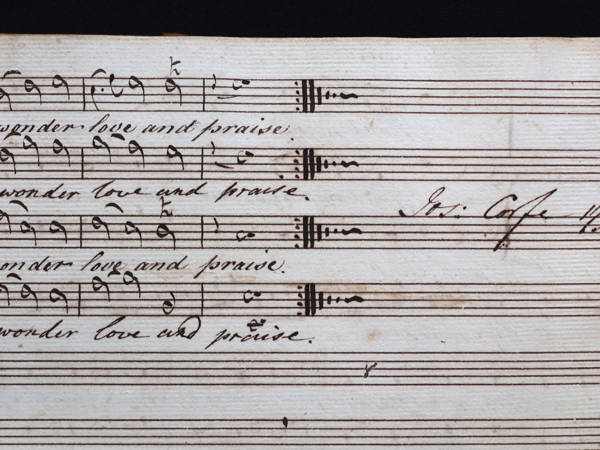 wonder love and praise.
wonder love and praise.
Jos: Corfe
onder love and praise.
wonder love and praise.